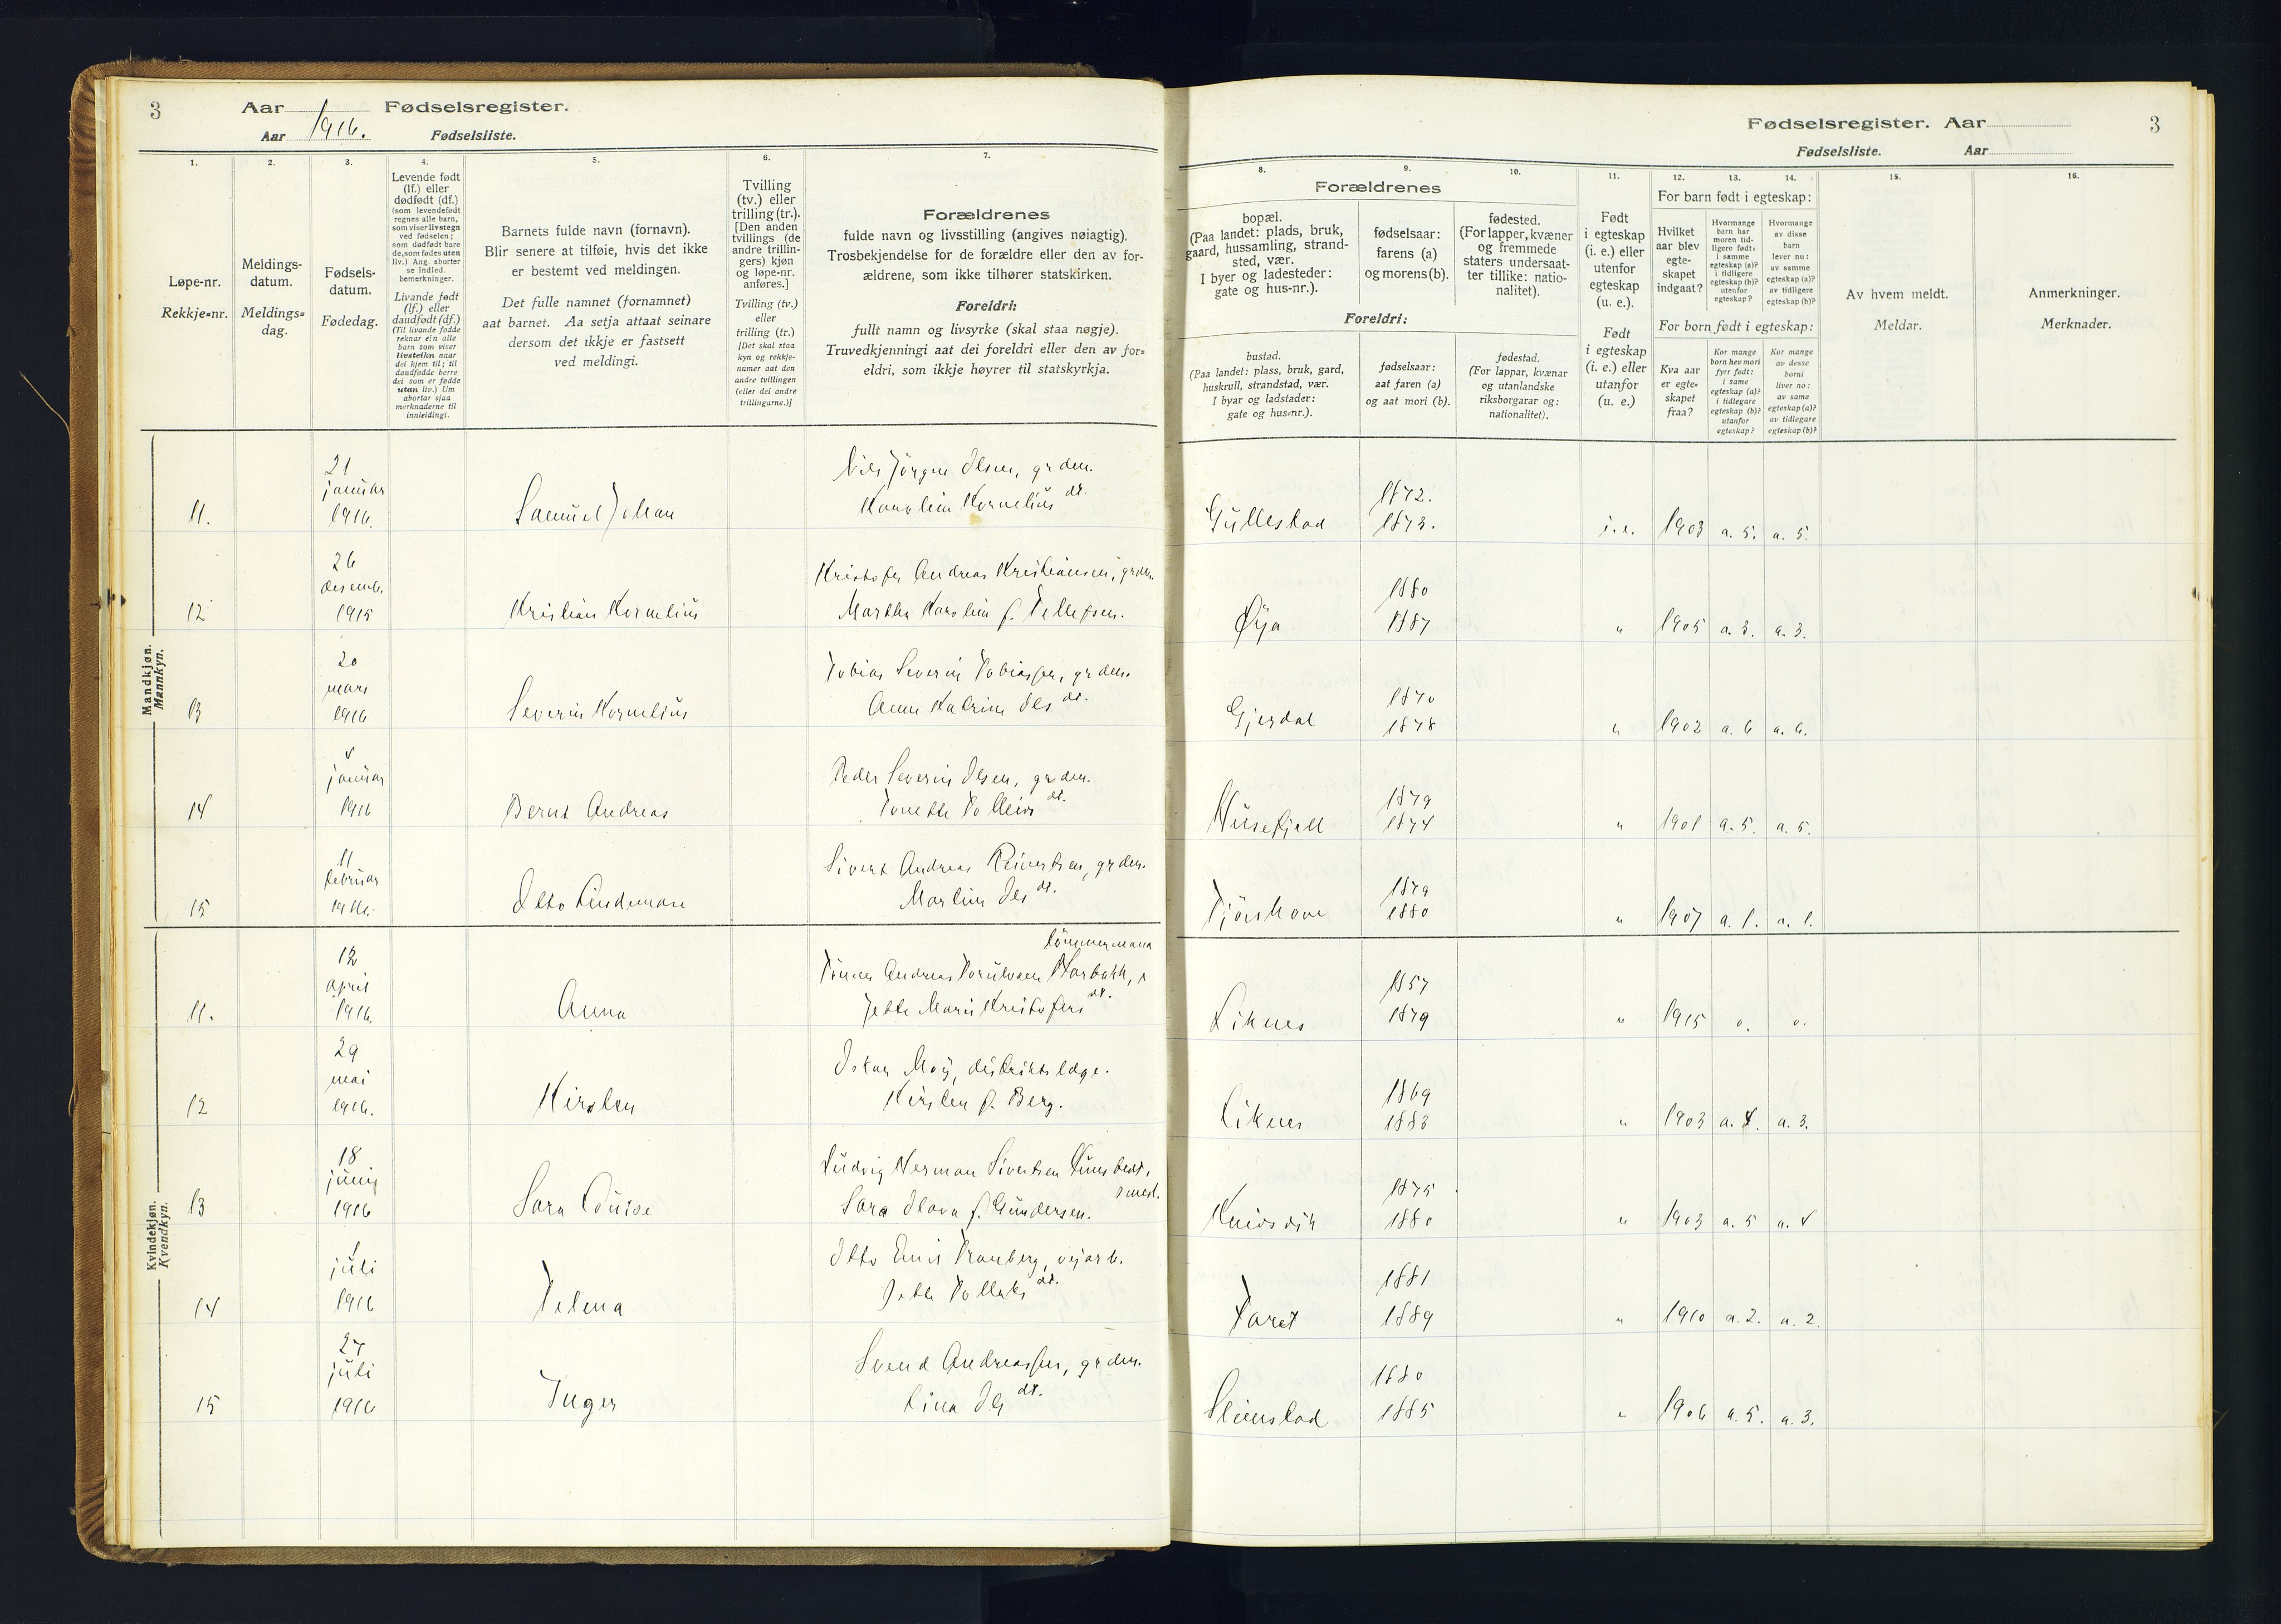 3
Aar Fødselsregister.
Aar 1916. Fødselsliste.
Fødselsregister. Aar
3
Fødselsliste. Aar
1.
Løpe-nr.
Rekkje=nr.
2.
Meldings-
datum.
Meldings=
dag.
3.
Fødsels-
datum.
Fødedag.
4.
Levende født
(lf.) eller
dødfødt (df.)
(som levendefødt
regnes alle barn,
som viser livstegn
ved fødselen;
som dødfødt bare
de, som fødes uten
liv.) Ang. aborter
se indled.
bemerkninger.
Livande født
(lf.) eller
daudfødt (df.)
(Til livande fødde
reknar ein alle
barn som viser
livsteikn naar
dei kjem til; til
daudfødde berre
dei som er fødde
utan liv.) Um
abortar sjaa
merknaderne til
innleidingi.
5.
Barnets fulde navn (fornavn).
Blir senere at tilføie, hvis det ikke
er bestemt ved meldingen.
Det fulle namnet (fornamnet)
aat barnet. Aa setja attaat seinare
dersom det ikkje er fastsett
ved meldingi.
6.
Tvilling
(tv.) eller
trilling (tr.).
[Den anden
tvillings (de
andre trillin-
gers) kjøn
og løpe-nr.
anføres.]
Tvilling (tv.)
eller
trilling (tr.)
[Det skal staa
kyn og rekkje-
numer aat den
andre tvillingen
(eller dei andre
trillingarne.)]
7.
Forældrenes
fulde navn og livsstilling (angives nøiagtig).
Trosbekjendelse for de forældre eller den av for-
ældrene, som ikke tilhører statskirken.
Foreldri:
fullt namn og livsyrke (skal staa nøgje).
Truvedkjenningi aat dei foreldri eller den av for=
eldri, som ikkje høyrer til statskyrkja.
8.
9.
10.
Forældrenes
bopæl.
(Paa landet: plads, bruk,
gaard, hussamling, strand-
sted, vær.
I byer og ladesteder:
gate og hus-nr.).
fødselsaar:
farens (a)
og morens (b).
fødested.
(For lapper, kvæner
og fremmede
staters undersaat-
ter tillike: natio-
nalitet).
Foreldri:
bustad.
(Paa landet: plass, bruk, gard,
huskrull, strandstad, vær.
I byar og ladstader:
gate og hus=nr.).
fødselsaar:
aat faren (a)
og aat mori (b).
fødestad.
(For lappar, kvænar
og utanlandske
riksborgarar og:
nationalitet).
11.
Født
i egteskap
(i. e.) eller
utenfor
egteskap
(u. e.).
Født
i egteskap
(i. e.) eller
utanfor
(u. e.)
12.
13.
14.
For barn født i egteskap:
Hvilket
aar blev
egte-
skapet
indgaat?
Hvormange
barn har
moren tid-
ligere født:
i samme
egteskap (a)?
i tidligere
egteskap (b)?
utenfor
egteskap?
Hvormange
av disse
barn
lever nu:
av samme
egteskap (a)?
av tidligere
egteskap (b)?
For born født i egteskap:
Kva aar
er egte=
skapet
fraa?
Kor mange
born hev mori
fyrr født:
i same
egteskap (a)?
i tidlegare
egteskap (b)?
utanfor
egteskap?
Kor mange
av desse
borni
liver no:
av same
egteskap (a)?
av tidlegare
egteskap (b)?
15.
Av hvem meldt.
Meldar.
16.
Anmerkninger.
Merknader.
Mandkjøn.
Mannkyn.
11.
21
januar
1916.
Samuel Johan
Nils Jörgen Olsen, grdm.
Karoline Kornelius dt.
Gullestad
1872.
1873.
i. e.
1903
a. 5.
a. 5.
12
26
desemb.
1915
Kristian Kornelius
Kristofer Andreas Kristiansen, grdm.
Martha Karoline f. Tellefsen.
Øya
1880
1887
"
1905
a. 3.
a. 3.
13
20
mars
1916
Severin Kornelius
Tobias Severin Tobiassen, grdm.
Anne Katrine Ols dt.
Gjerdal
1870
1878
"
1902
a. 6
a. 6.
14
4
januar
1916
Bernt Andreas
Peder Severin Olsen, grdm.
Tonette Tolleivs dt.
Husefjell
1879
1874
"
1901
a. 5.
a. 5.
15
11
februar
1916.
Otto Andemar
Sivert Andreas Reinertsen, grdm.
Martine Ols dt.
1879
1880
"
1907
a. 1.
a. 1.
Kvindekjøn.
Kvendkyn.
11.
12
april
1916.
Anna
tömmermand
Tönnes Andreas Torulvsen
Jette Marie Kristofers dt.
Liknes
1857
1879
"
1915
o.
o.
12
29
mai
1916.
Kirsten
Oskar Moij, distriktslæge.
Kirsten f. Berg.
Liknes
1869
1883
"
1903
a. 4.
a. 3.
13
18
juni
1916
Sara Louise
Ludvig Herman Sivertsen
smed.
Sara Olava f. Gundersen.
1875
1880
"
1903
a. 5
a. 4
14
1
juli
1916
Telma
Otto Emil Tranberg, veiarb.
Jette Tollaks dt.
1881
1889
"
1910
a. 2.
a. 2.
15
24
juli
1916
Inger
Svend Andreassen, grdm.
Lina Ols dt.
Steinstad
1880
1885
"
1906
a. 5.
a. 3.